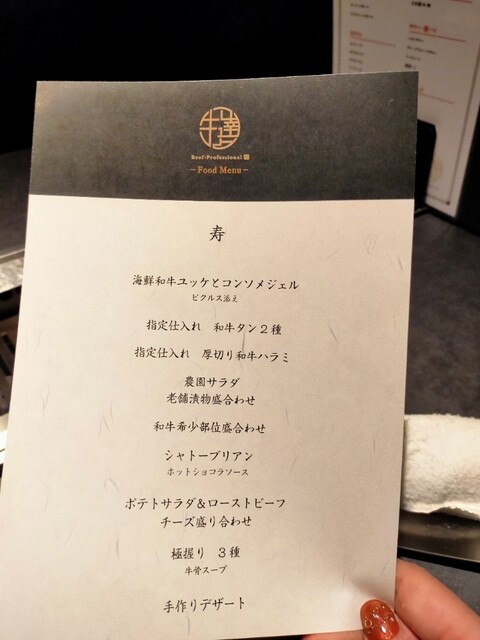 牛達
Beef-Professional
-Food Menu-
寿
海鮮和牛ユッケとコンソメジェル
ピクルス添え
指定仕入れ 和牛タン2種
指定仕入れ 厚切り和牛ハラミ
農園サラダ
老舗漬物盛合わせ
和牛希少部位盛合わせ
シャトーブリアン
ホットショコラソース
ポテトサラダ&ローストビーフ
チーズ盛り合わせ
極握り 3種
牛骨スープ
手作りデザート